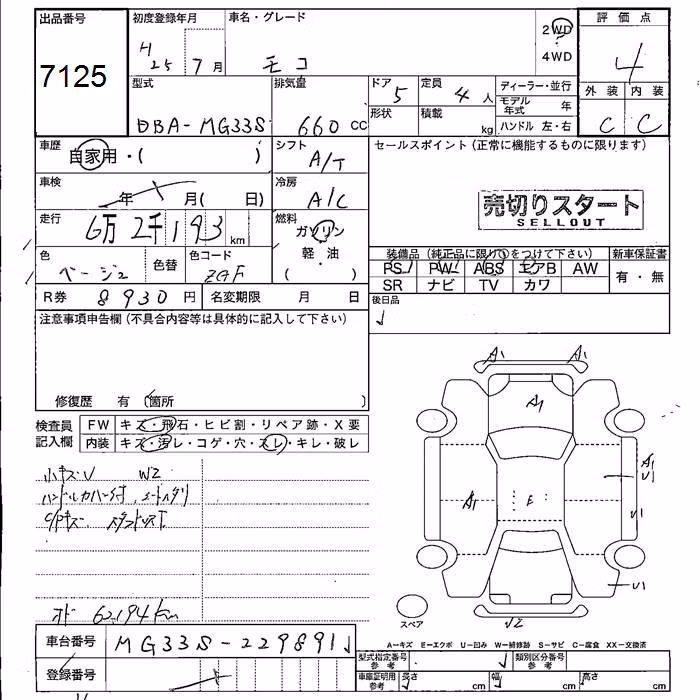 出品番号 初度登録年月 車名・グレード 2WD 評価点
7125 H25 7月 モコ 4WD 4
型式 排気量 ドア 5 定員 4人 ディーラー・並行 外装 内装
DBA-MG33S 660 CC 形状 積載 kg モデル年式 年 C C
ハンドル 左・右
車歴 自家用・( ) シフト A/T セールスポイント(正常に機能するものに限ります)
車検 年 月( 日) 冷房 A/C
売切りスタート
SELLOUT
走行 6万2千193km 燃料 ガソリン
軽・油
( )
色 ベージュ 色替 色コード 装備品(純正品に限り○をつけて下さい) 新車保証書
PS PW ABS エアB AW 有・無
R券 8930円 名変期限 月 日 SR ナビ TV カワ
後日品
注意事項申告欄(不具合内容等は具体的に記入して下さい)
修復歴 有(箇所 )
A1 A1
A1
検査員 FW キズ・飛石・ヒビ割・リペア跡・X要
記入欄 内装 キズ・汚レ・コゲ・穴・スレ・キレ・破レ
小キズU W2
A1
U1
A1 E U1
U1
オド 62,194km
スペア W2
A−キズ E−エクボ U−凹み W−補修跡 S−サビ C−腐食 XX−交換済
車台番号 MG33S-229891
型式指定番号 参考 類別区分番号 参考
登録番号
車庫証明用 参考 長さ cm 幅 cm 高さ cm